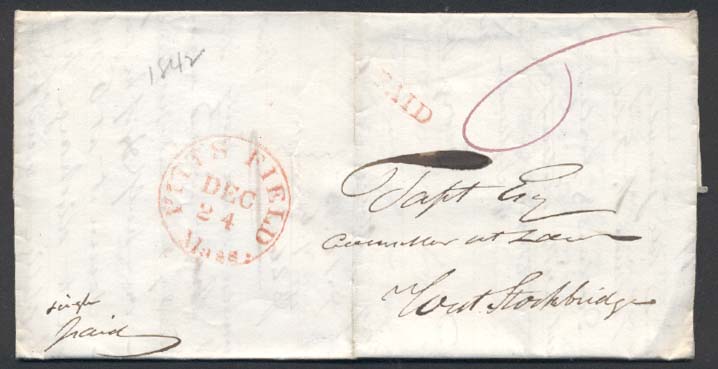 1842
PAID
6
PITTSFIELD
DEC
24
Mass.
Taft Esq
Counsellor at Law
West Stockbridge
single
paid